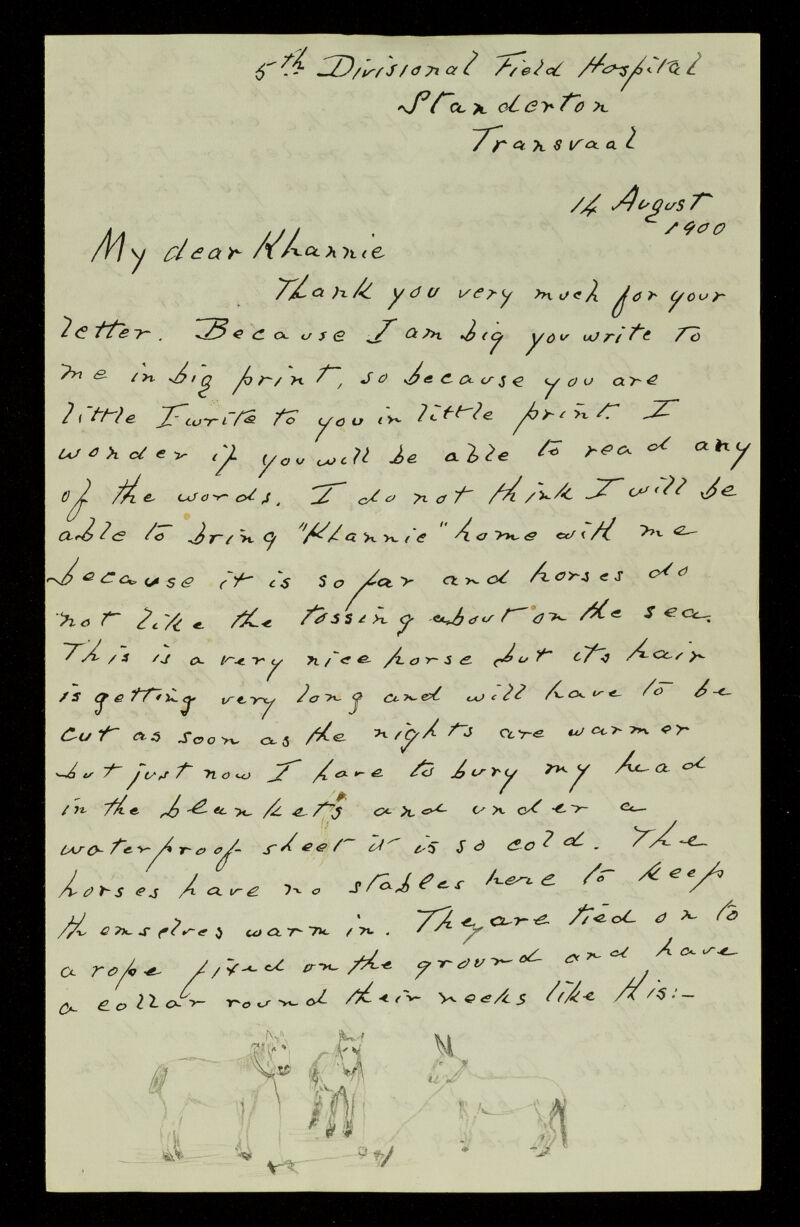 5th Divisional Field Hospital
Standerton
Transvaal
14 August
1900
My dear Khannie
Thank you very much for your
letter. Because I am big you write to
me in big print, so because you are
little I write to you in little print. I
wonder if you will be able to read any
of the words. I do not think I will be
able to bring "Khannie" home with me
because it is so far and horses do
not like the tossing about on the sea.
This is a very nice horse but its hair
is getting very long and will have to be
cut as soon as the nights are warmer
but just now I have to bury my head
in the blankets and under a
waterproof sheet it is so cold. The
horses have no stables here to keep
themselves warm in. They are tied on to
a rope fixed on the ground and have
a collar round their necks like this:-